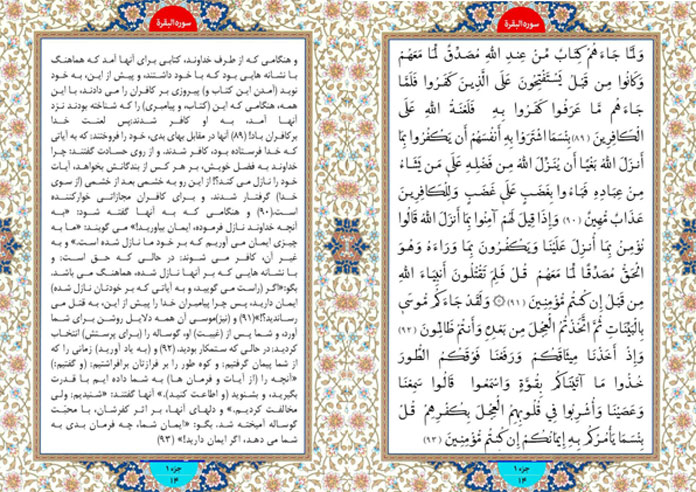 سورة‌البقرة
وَلَمَّا جَاءَهُمْ كِتَابٌ مِّنْ عِندِ اللَّهِ مُصَدِّقٌ لِّمَا مَعَهُمْ
وَكَانُوا مِن قَبْلُ يَسْتَفْتِحُونَ عَلَى الَّذِينَ كَفَرُوا فَلَمَّا
جَاءَهُم مَّا عَرَفُوا كَفَرُوا بِهِ فَلَعْنَةُ اللَّهِ عَلَى
الْكَافِرِينَ (۸۹) بِئْسَمَا اشْتَرَوْا بِهِ أَنفُسَهُمْ أَن يَكْفُرُوا بِمَا
أَنزَلَ اللَّهُ بَغْيًا أَن يُنَزِّلَ اللَّهُ مِن فَضْلِهِ عَلَى مَن يَشَاءُ
مِنْ عِبَادِهِ فَبَاءُوا بِغَضَبٍ عَلَى غَضَبٍ وَلِلْكَافِرِينَ
عَذَابٌ مُّهِينٌ (۹۰) وَإِذَا قِيلَ لَهُمْ آمِنُوا بِمَا أَنزَلَ اللَّهُ قَالُوا
نُؤْمِنُ بِمَا أُنزِلَ عَلَيْنَا وَيَكْفُرُونَ بِمَا وَرَاءَهُ وَهُوَ
الْحَقُّ مُصَدِّقًا لِّمَا مَعَهُمْ قُلْ فَلِمَ تَقْتُلُونَ أَنبِيَاءَ اللَّهِ
مِن قَبْلُ إِن كُنتُم مُّؤْمِنِينَ (۹۱) ۞ وَلَقَدْ جَاءَكُم مُّوسَى
بِالْبَيِّنَاتِ ثُمَّ اتَّخَذْتُمُ الْعِجْلَ مِن بَعْدِهِ وَأَنتُمْ ظَالِمُونَ (۹۲)
وَإِذْ أَخَذْنَا مِيثَاقَكُمْ وَرَفَعْنَا فَوْقَكُمُ الطُّورَ
خُذُوا مَا آتَيْنَاكُم بِقُوَّةٍ وَاسْمَعُوا قَالُوا سَمِعْنَا
وَعَصَيْنَا وَأُشْرِبُوا فِي قُلُوبِهِمُ الْعِجْلَ بِكُفْرِهِمْ قُلْ
بِئْسَمَا يَأْمُرُكُم بِهِ إِيمَانُكُمْ إِن كُنتُم مُّؤْمِنِينَ (۹۳)
جزء ۱
۱۴
سورة‌البقرة
و هنگامی که از طرف خداوند، کتابی برای آنها آمد که هماهنگ
با نشانه هایی بود که با خود داشتند، و پیش از این، به خود
نوید (آمدن این کتاب و) پیروزی بر کافران را می دادند، با این
همه، هنگامی که این (کتاب، و پیامبری) را که شناخته بودند نزد
آنها آمد، به او کافر شدند؛پس لعنت خدا
برکافران باد! (۸۹) آنها در مقابل بهای بدی، خود را فروختند: که به آیاتی
که خدا فرستاده بود، کافر شدند. و از روی حسادت گفتند: چرا
خداوند به فضل خویش، بر هر کس از بندگانش بخواهد، آیات
خود را نازل می کند؟! از این رو به خشمی بعد از خشمی (از سوی
خدا) گرفتار شدند. و برای کافران مجازاتی خوارکننده
است.(۹۰) و هنگامی که به آنها گفته شود: «به
آنچه خداوند نازل فرموده، ایمان بیاورید!» می گویند: «ما به
چیزی ایمان می آوریم که بر خود ما نازل شده است.» و به
غیر آن، کافر می شوند؛ در حالی که حق است؛ و
با نشانه هایی که بر آنها نازل شده، هماهنگ می باشد.
بگو:«اگر (راست می گویید، و به آیاتی که بر خودتان نازل شده)
ایمان دارید، پس چرا پیامبران خدا را پیش از این، به قتل می
رساندید؟!»(۹۱) و (نیز)موسی آن همه دلایل روشن برای شما
آورد، و شما پس از (غیبت) او، گوساله را (برای پرستش) انتخاب
کردید؛ در حالی که ستمکار بودید. (۹۲) و (به یاد آورید) زمانی را که
از شما پیمان گرفتیم؛ و کوه طور را بر فرازتان برافراشتیم؛ (و گفتیم:)
«آنچه را (از آیات و فرمان ها) به شما داده ایم با قدرت
بگیرید، و بشنوید (و اطاعت کنید).» آنها گفتند: «شنیدیم؛ ولی
مخالفت کردیم.» و دلهای آنها، بر اثر کفرشان، با محبّت
گوساله آمیخته شد. بگو: «ایمان شما، چه فرمان بدی به
شما می دهد، اگر ایمان دارید!» (۹۳)
جزء ۱
۱۴